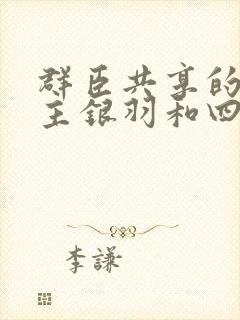 群臣共享的
主銀羽和四
李謙